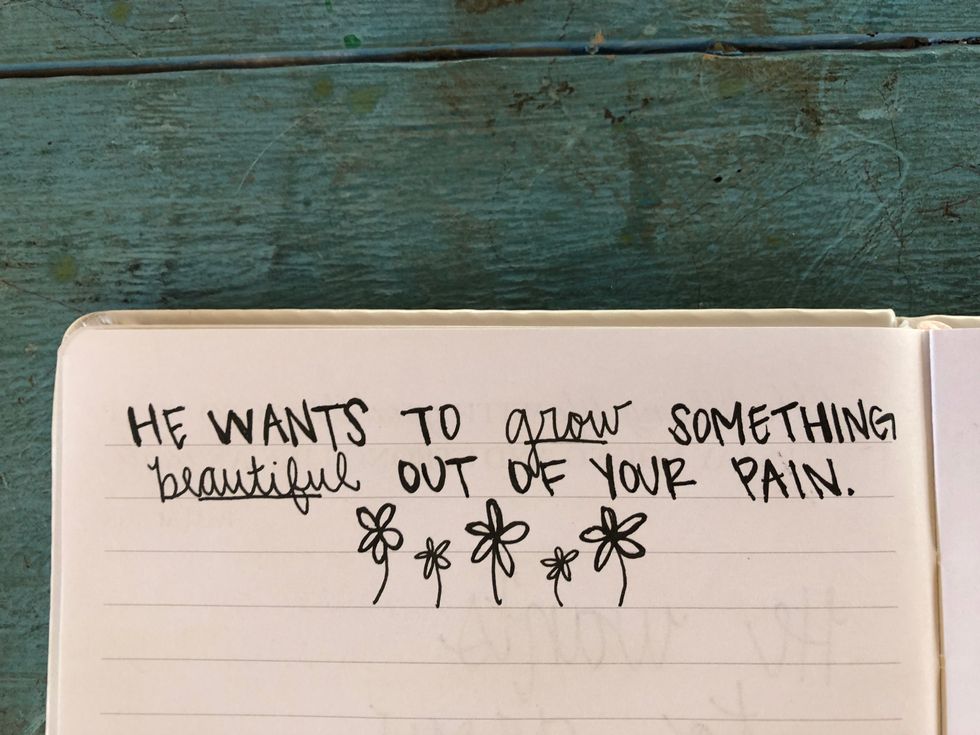 HE WANTS TO grow SOMETHING
beautiful OUT OF YOUR PAIN.